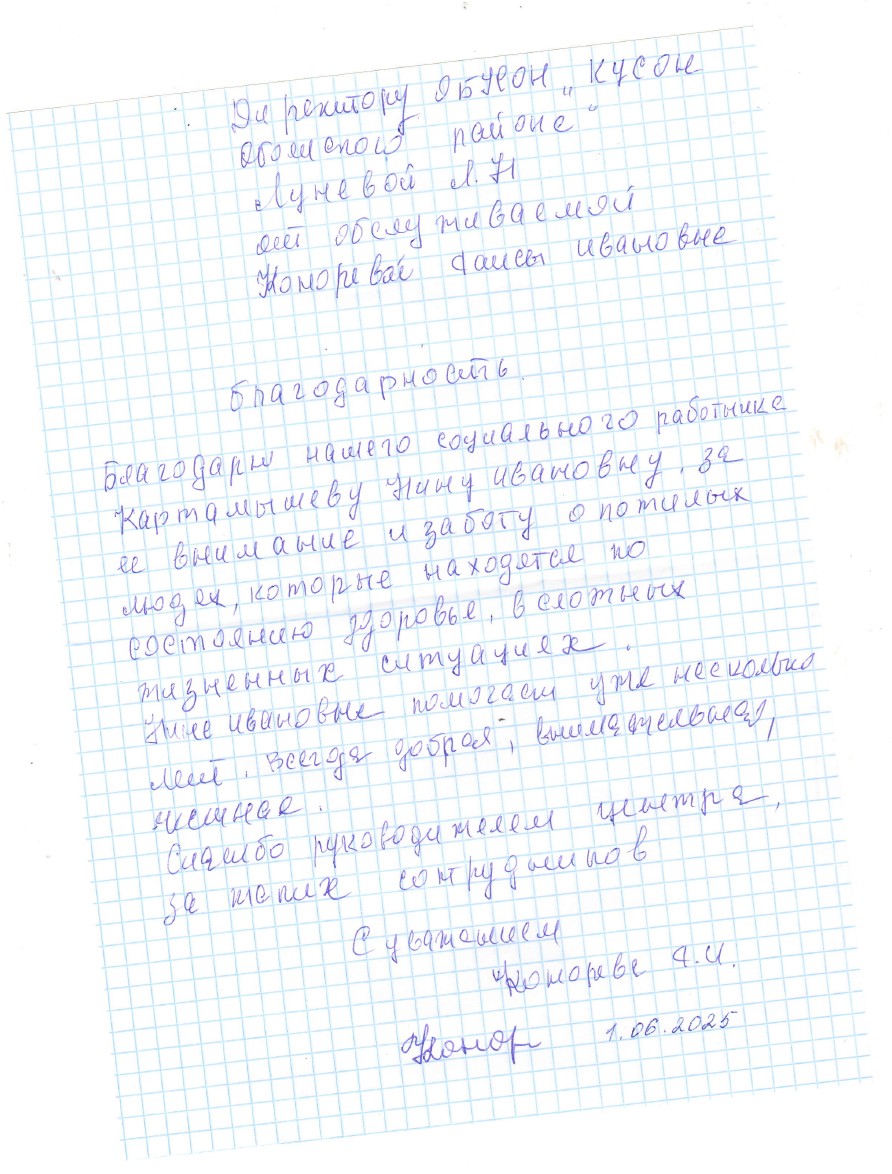 Директору ОБУСОН „КЦСОН
Обоянского района"
Луневой Л.Н
от обслуживаемой
Коноревай Фаисы Ивановне
Благодарность.
Благодарю нашего социального работника
Картамышеву Нину Ивановну, за
ее внимание и заботу о пожилых
людях, которые находятся по
состоянию здоровья, в сложных
жизненных ситуациях.
Нина Ивановна помогает уже несколько
лет. Всегда добрая, внимательная,
честная.
Спасибо руководителем центра,
за таких сотрудников
С уважением
Конорева Ф.И.
Конор 1.06.2025